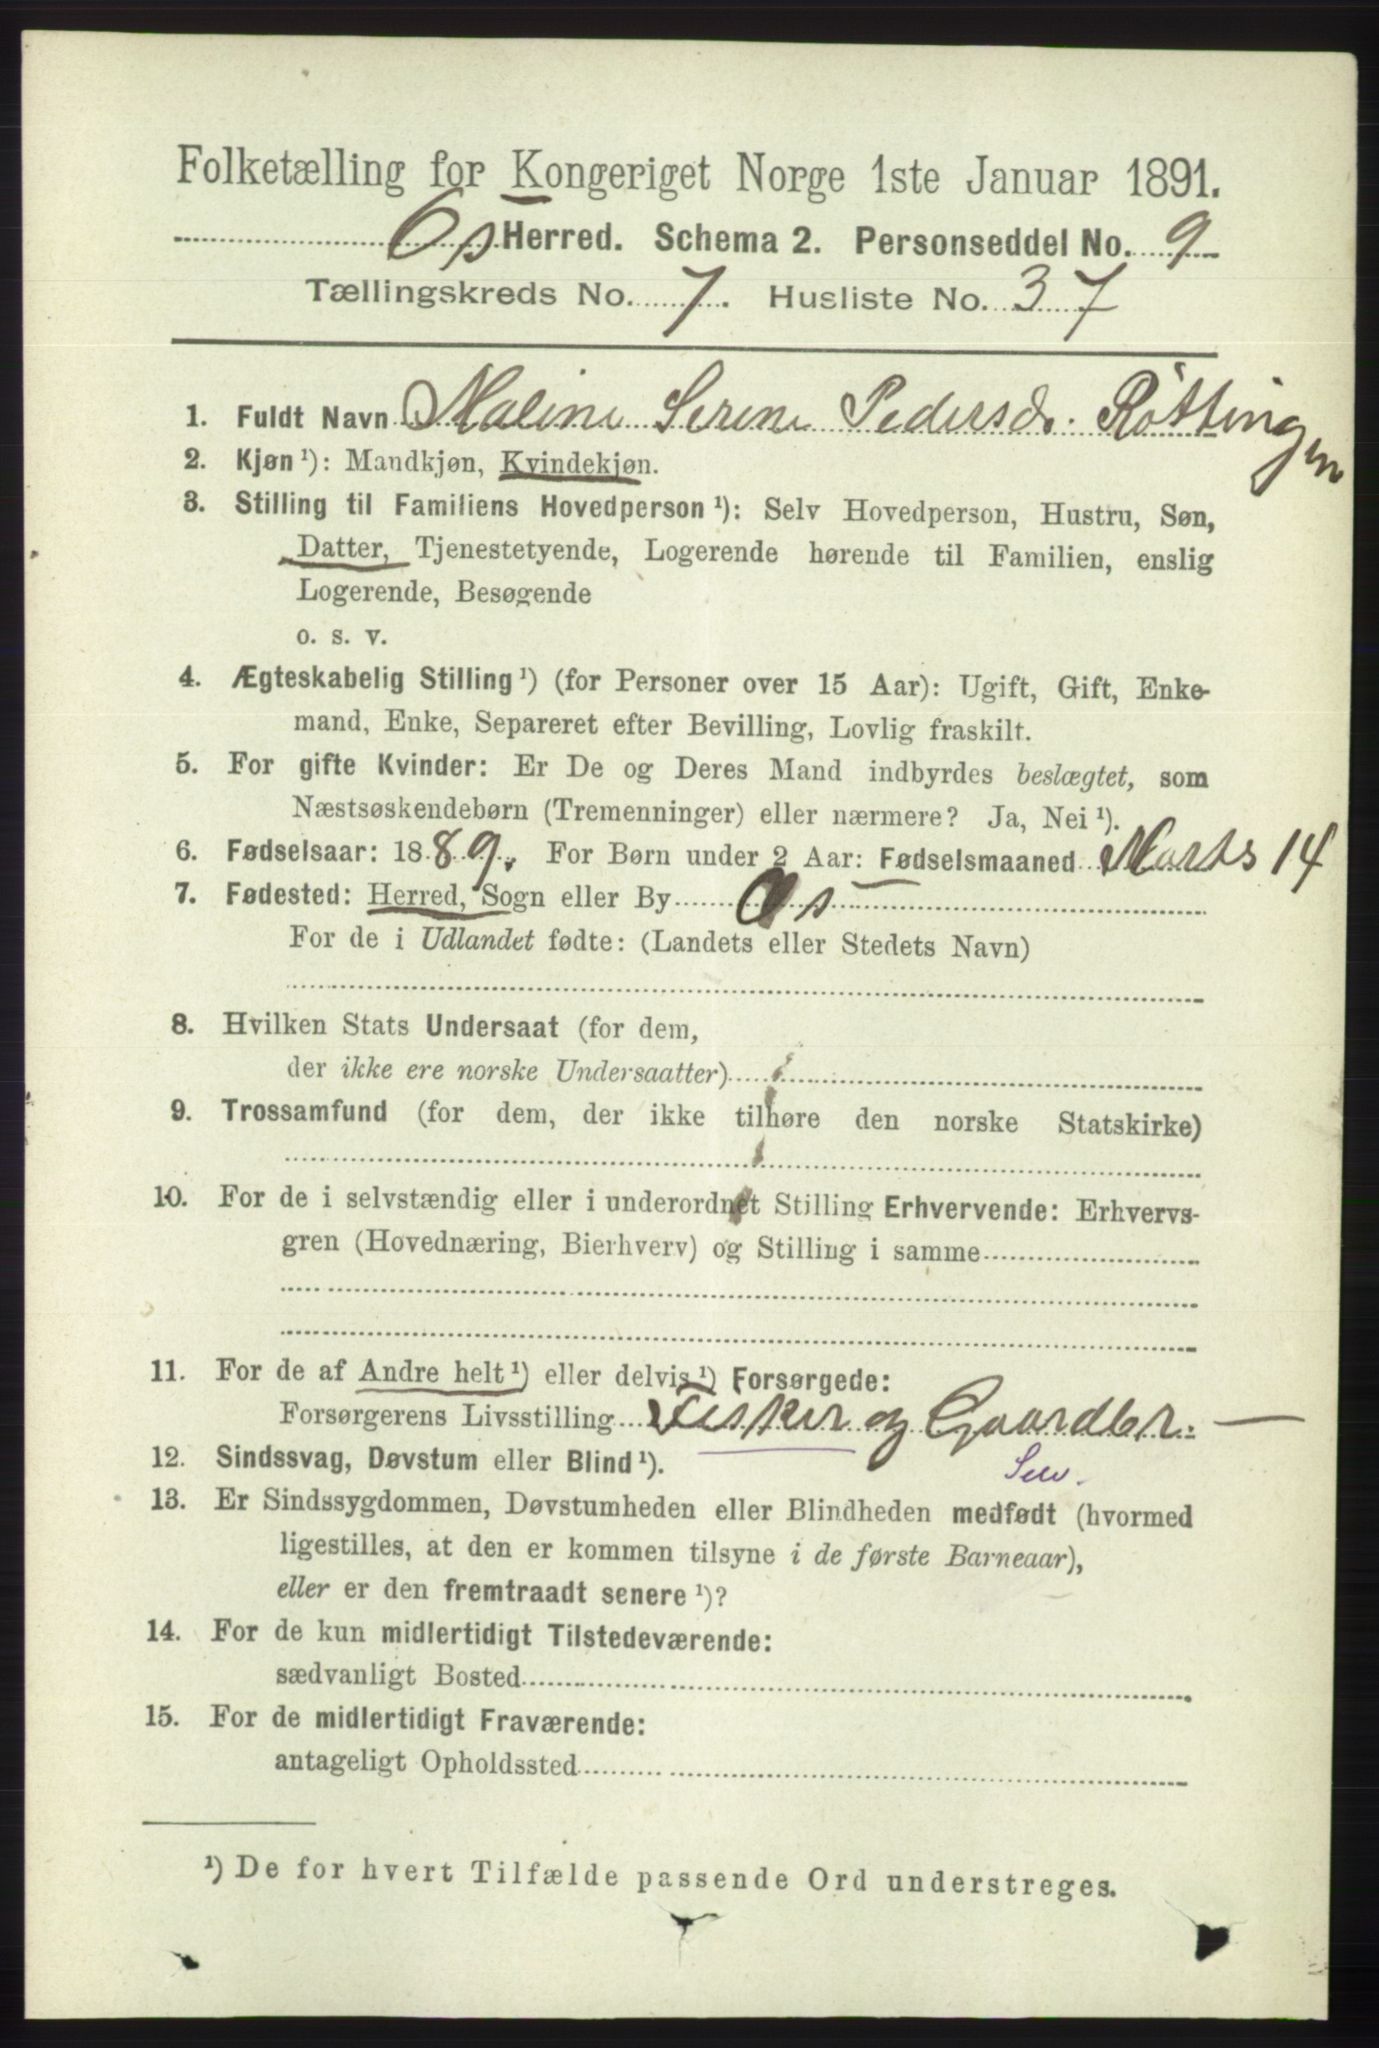 Folketælling for Kongeriget Norge 1ste Januar 1891.
Os Herred. Schema 2. Personseddel No. 9
Tællingskreds No. 7. Husliste No. 37
1. Fuldt Navn Maline Serene Pedersdr. Röttingen
2. Kjøn ¹): Mandkjøn, Kvindekjøn.
3. Stilling til Familiens Hovedperson ¹): Selv Hovedperson, Hustru, Søn,
Datter, Tjenestetyende, Logerende hørende til Familien, enslig
Logerende, Besøgende
o. s. v.
4. Ægteskabelig Stilling ¹) (for Personer over 15 Aar): Ugift, Gift, Enke-
mand, Enke, Separeret efter Bevilling, Lovlig fraskilt.
5. For gifte Kvinder: Er De og Deres Mand indbyrdes beslægtet, som
Næstsøskendebørn (Tremenninger) eller nærmere? Ja, Nei ¹).
6. Fødselsaar: 1889. For Børn under 2 Aar: Fødselsmaaned Marts 14
7. Fødested: Herred, Sogn eller By Os
For de i Udlandet fødte: (Landets eller Stedets Navn)
8. Hvilken Stats Undersaat (for dem,
der ikke ere norske Undersaatter)
9. Trossamfund (for dem, der ikke tilhøre den norske Statskirke)
10. For de i selvstændig eller i underordnet Stilling Erhvervende: Erhvervs-
gren (Hovednæring, Bierhverv) og Stilling i samme
11. For de af Andre helt ¹) eller delvis ¹) Forsørgede:
Forsørgerens Livsstilling Fisker og Gaardbr. —
Selv.
12. Sindssvag, Døvstum eller Blind ¹).
13. Er Sindssygdommen, Døvstumheden eller Blindheden medfødt (hvormed
ligestilles, at den er kommen tilsyne i de første Barneaar),
eller er den fremtraadt senere ¹)?
14. For de kun midlertidigt Tilstedeværende:
sædvanligt Bosted
15. For de midlertidigt Fraværende:
antageligt Opholdssted
¹) De for hvert Tilfælde passende Ord understreges.